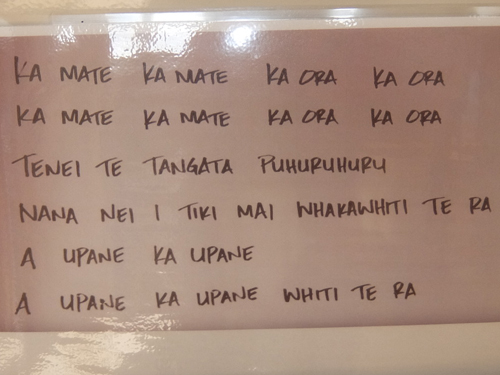 KA MATE KA MATE KA ORA KA ORA
KA MATE KA MATE KA ORA KA ORA
TENEI TE TANGATA PUHURUHURU
NANA NEI I TIKI MAI WHAKAWHITI TE RA
A UPANE KA UPANE
A UPANE KA UPANE WHITI TE RA